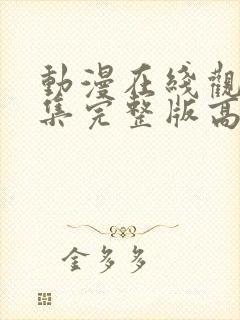 動漫在綫觀
集完整版高
金多多